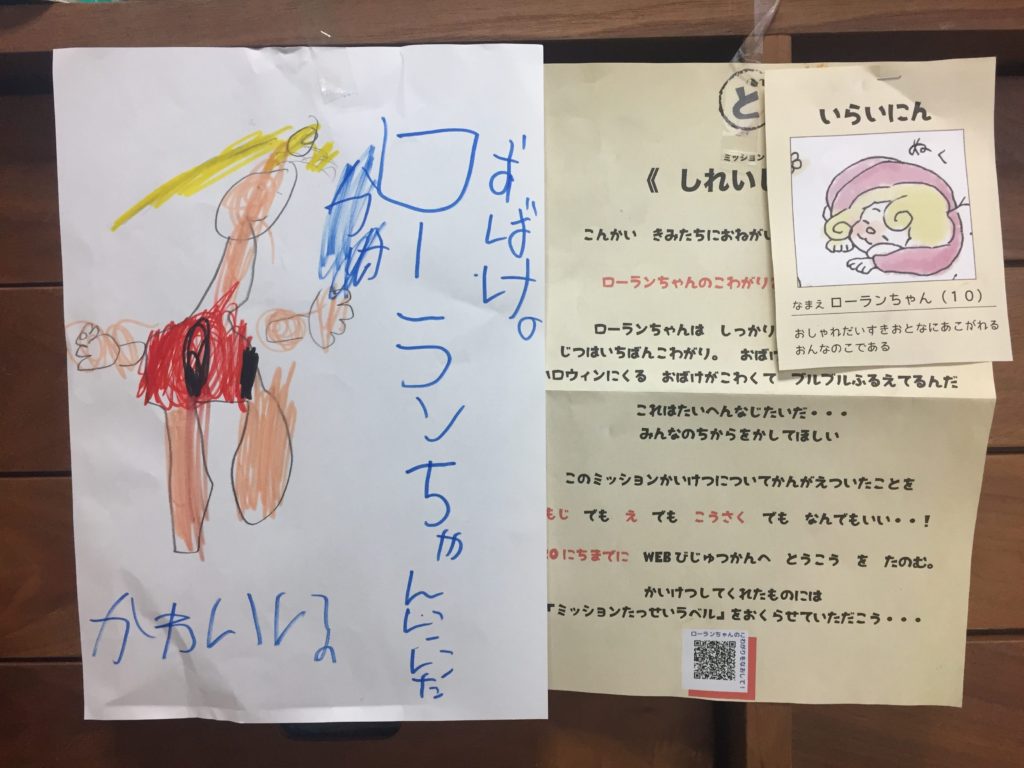 ずばけ。
ローランちゃん
かわいい。
ど
ミッション
《 しれいし
こんかい きみたちにおねがい
ローランちゃんのこわがり
ローランちゃんは しっかり
じつはいちばんこわがり。 おばけ
ハロウィンにくる おばけがこわくて ブルブルふるえてるんだ
これはたいへんなじたいだ・・・
みんなのちからをかしてほしい
このミッションかいけつについてかんがえついたことを
もじ でも え でも こうさく でも なんでもいい・・!
20にちまでに WEBびじゅつかんへ とうこう を たのむ。
かいけつしてくれたものには
『ミッションたっせいラベル』をおくらせていただこう・・・
ローランちゃんのこわがりをなおして!
いらいにん
ぬく
なまえ ローランちゃん(10)
おしゃれだいすきおとなにあこがれる
おんなのこである